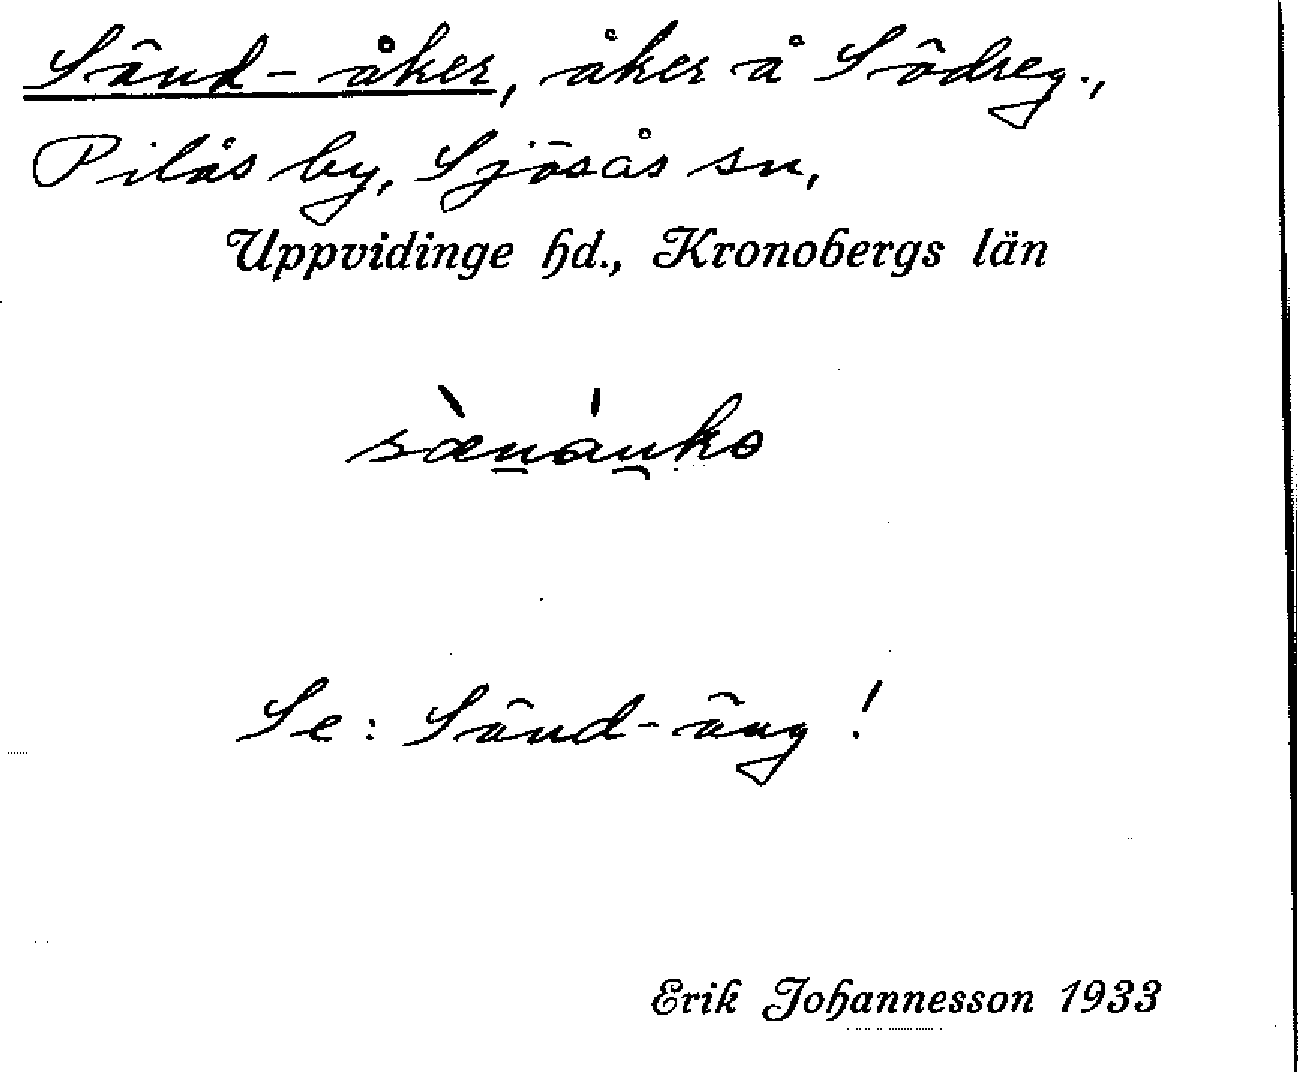 Sänd-åker, åker å Södreg.,
Pilås by, Sjösås sn,
Uppvidinge hd., Kronobergs län
sæ̀nánko
Se: Sänd-äng!
Erik Johannesson 1933